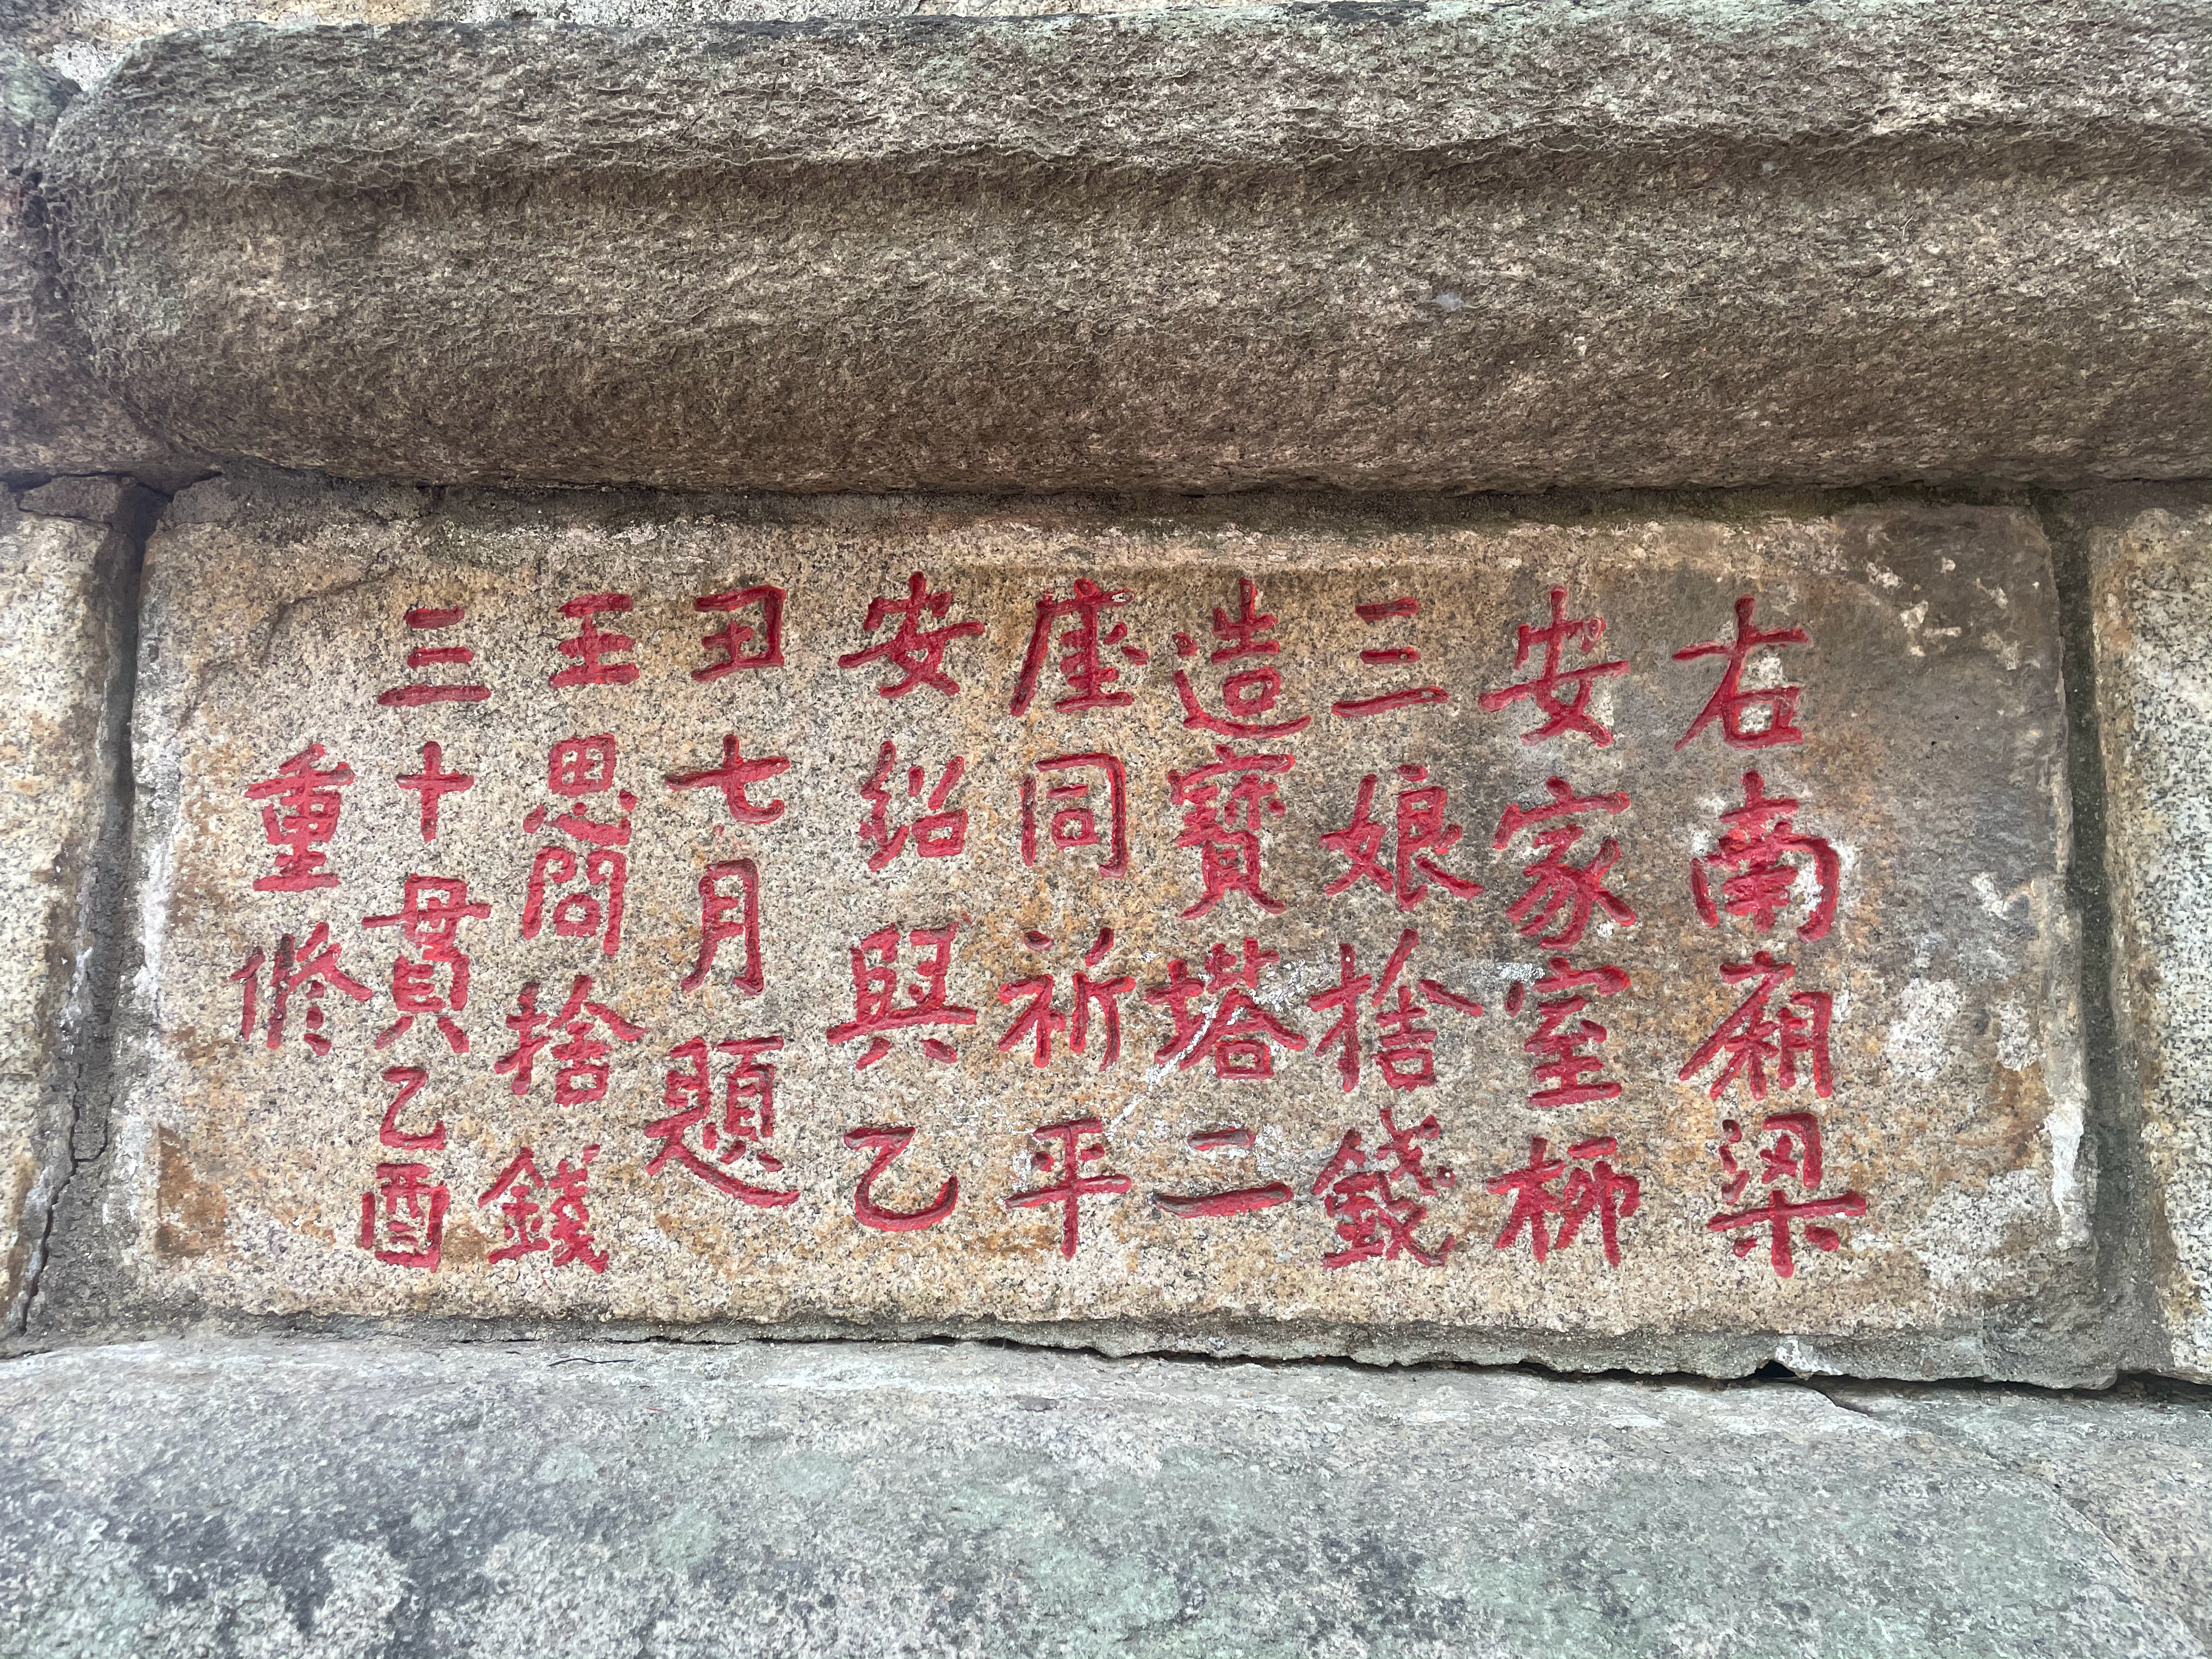 右南廂梁
安家室柳
三娘捨錢
造寳塔二
座同祈平
安紹興乙
丑七月題
王思問捨錢
三十貫乙酉
重修